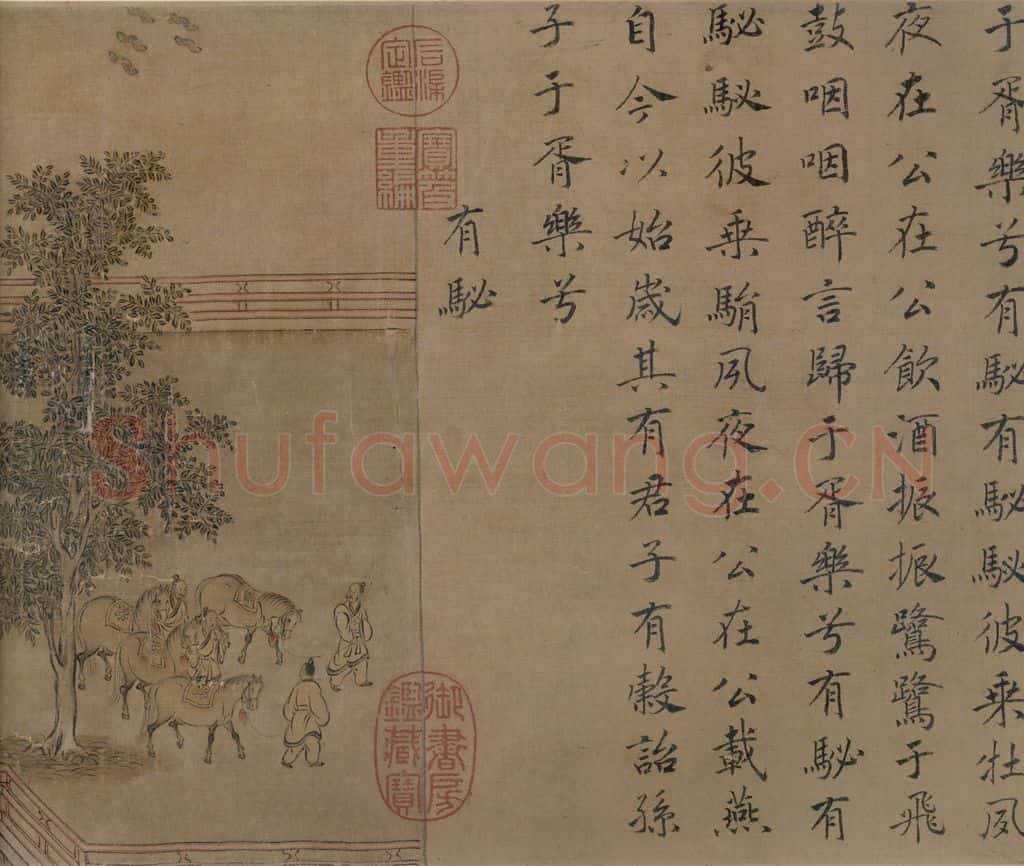 于胥樂兮有駜有駜駜彼乘牡夙
夜在公在公飲酒振振鷺鷺于飛
鼓咽咽醉言歸于胥樂兮有駜有
駜駜彼乘駽夙夜在公在公載燕
自今以始歲其有君子有穀詒孫
子于胥樂兮
有駜
石渠定鑑
寶笈重編
御書房鑑藏寶
Shufawang.CN